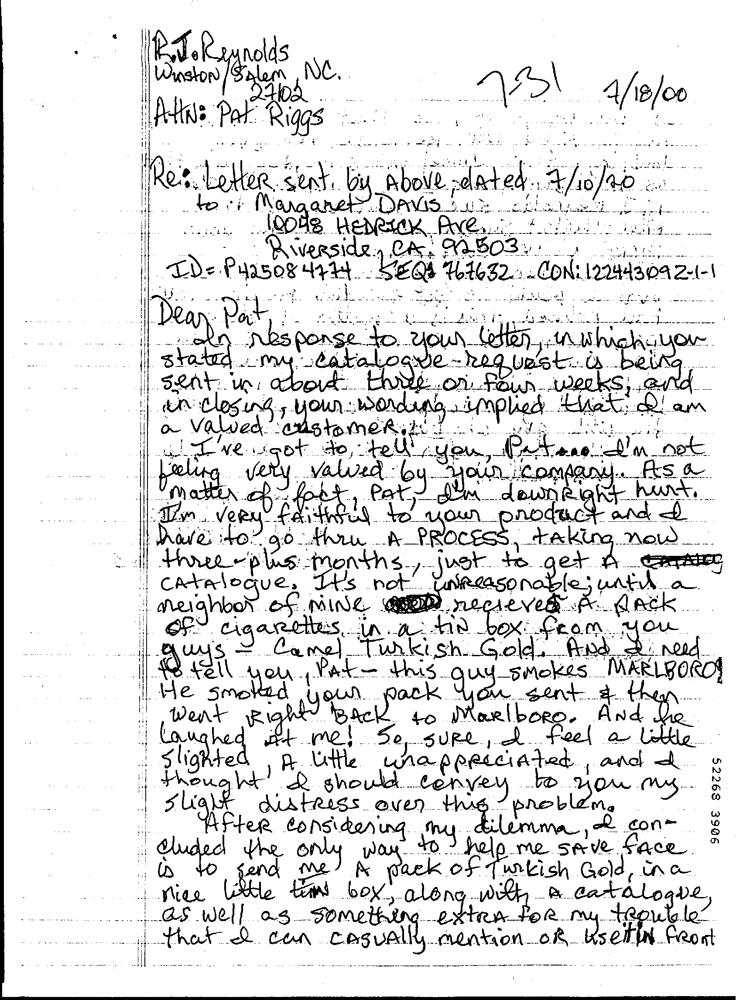 R.J. Reynolds
Winston/Salem, NC.
27102
Attn: Pat Riggs
7-31
7/18/00
Re: Letter sent by Above, dated 7/10/20
to: Margaret DAVIS
10048 HEDRICK Ave.
Riverside, CA. 92503
ID= P425084774 SEQ# 767632 CON: 122443092-1-1
Dear Pat,
In response to your letter, in which you
stated my catalogue request is being
sent in about three or four weeks, and
in closing, your wording implied that I am
a valued customer.
I've got to tell you, Pat... I'm not
feeling very valued by your company. As a
matter of fact, Pat, I'm downright hurt.
I'm very faithful to your product and I
have to go thru A PROCESS, taking now
three-plus months, just to get A
CATAlogue. It's not unreasonable; until a
neighbor of mine recieves A PACK
of cigarettes in a tin box from you
guys - Camel Turkish Gold. And I need
to tell you, PAt - this guy smokes MARLBOROS!
He smoked your pack you sent & then
went right BACK to Marlboro. And he
laughed At me! So, sure, I feel a little
slighted, A little unappreciated, and I
thought I should convey to you my
slight distress over this problem.
After considering my dilemma, I con-
cluded the only way to help me save face
is to send me A pack of Turkish Gold, in a
nice little tin box, along with A catalogue,
as well as something extra for my trouble
that I can casually mention or use it in front
52268 3906